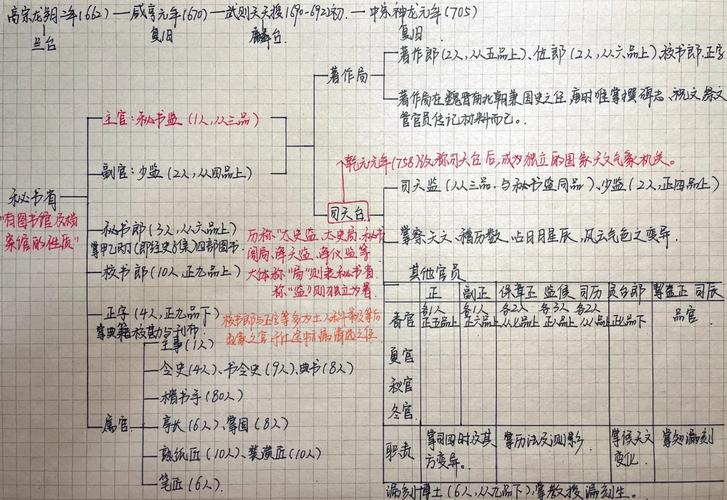 高宗龙朔二年(662)—咸亨元年(670)—武则天天授(690-692)初.—中宗神龙元年(705)
兰台 复旧 麟台. 复旧
著作局
著作郎(2人,从五品上)、佐郎(2人,从六品上)、校书郎、正字
著作局在魏晋南北朝兼国史之任,唐时唯掌撰碑志、祝文、祭文
管官员传记材料而已。
主官:秘书监(1人,从三品)
副官:少监(2人,从四品上)
乾元元年(758)改称司天台后,成为独立的国家天文气象机关。
秘书省
"有图书馆及档
案馆的性质"
司天台
司天监(从三品,与秘书监同品)、少监(2人,正四品上)
掌察天文、稽历数、占日月星辰、风云气色之变异.
秘书郎(3人,从六品上)
掌甲乙丙丁(即经史子集)四部图书.
校书郎(10人,正九品上)
历称"太史监、太史局、秘书
阁局、浑天监、浑仪监等
大体称"局"则隶秘书省,
称"监"则独立为署.
正字(4人,正九品下)
掌典籍校勘与刊布
校书郎与正字等多为士人科举及第后
起家之官
其他官员
正 副正 保章正 监候 司历 灵台郎 挈壶正 司辰
春官 各1人 各1人 各2人 各3人 各2人
正五品上 正六品上 从七品上 正八品上 从八品上 正八品下 品官.
夏官
秋官
冬官
职责 掌司四时及其 掌历法及测影. 掌候天文 掌知漏刻
方变异. 变化.
漏刻博士(6人,从九品下),掌教授漏刻生。
属官
主事(1人)
令史(4人)、书令史(9人)、典书(8人)
楷书手(80人)
亭长(6人)、掌固(8人)
熟纸匠(10人)、装潢匠(10人)
笔匠(6人).